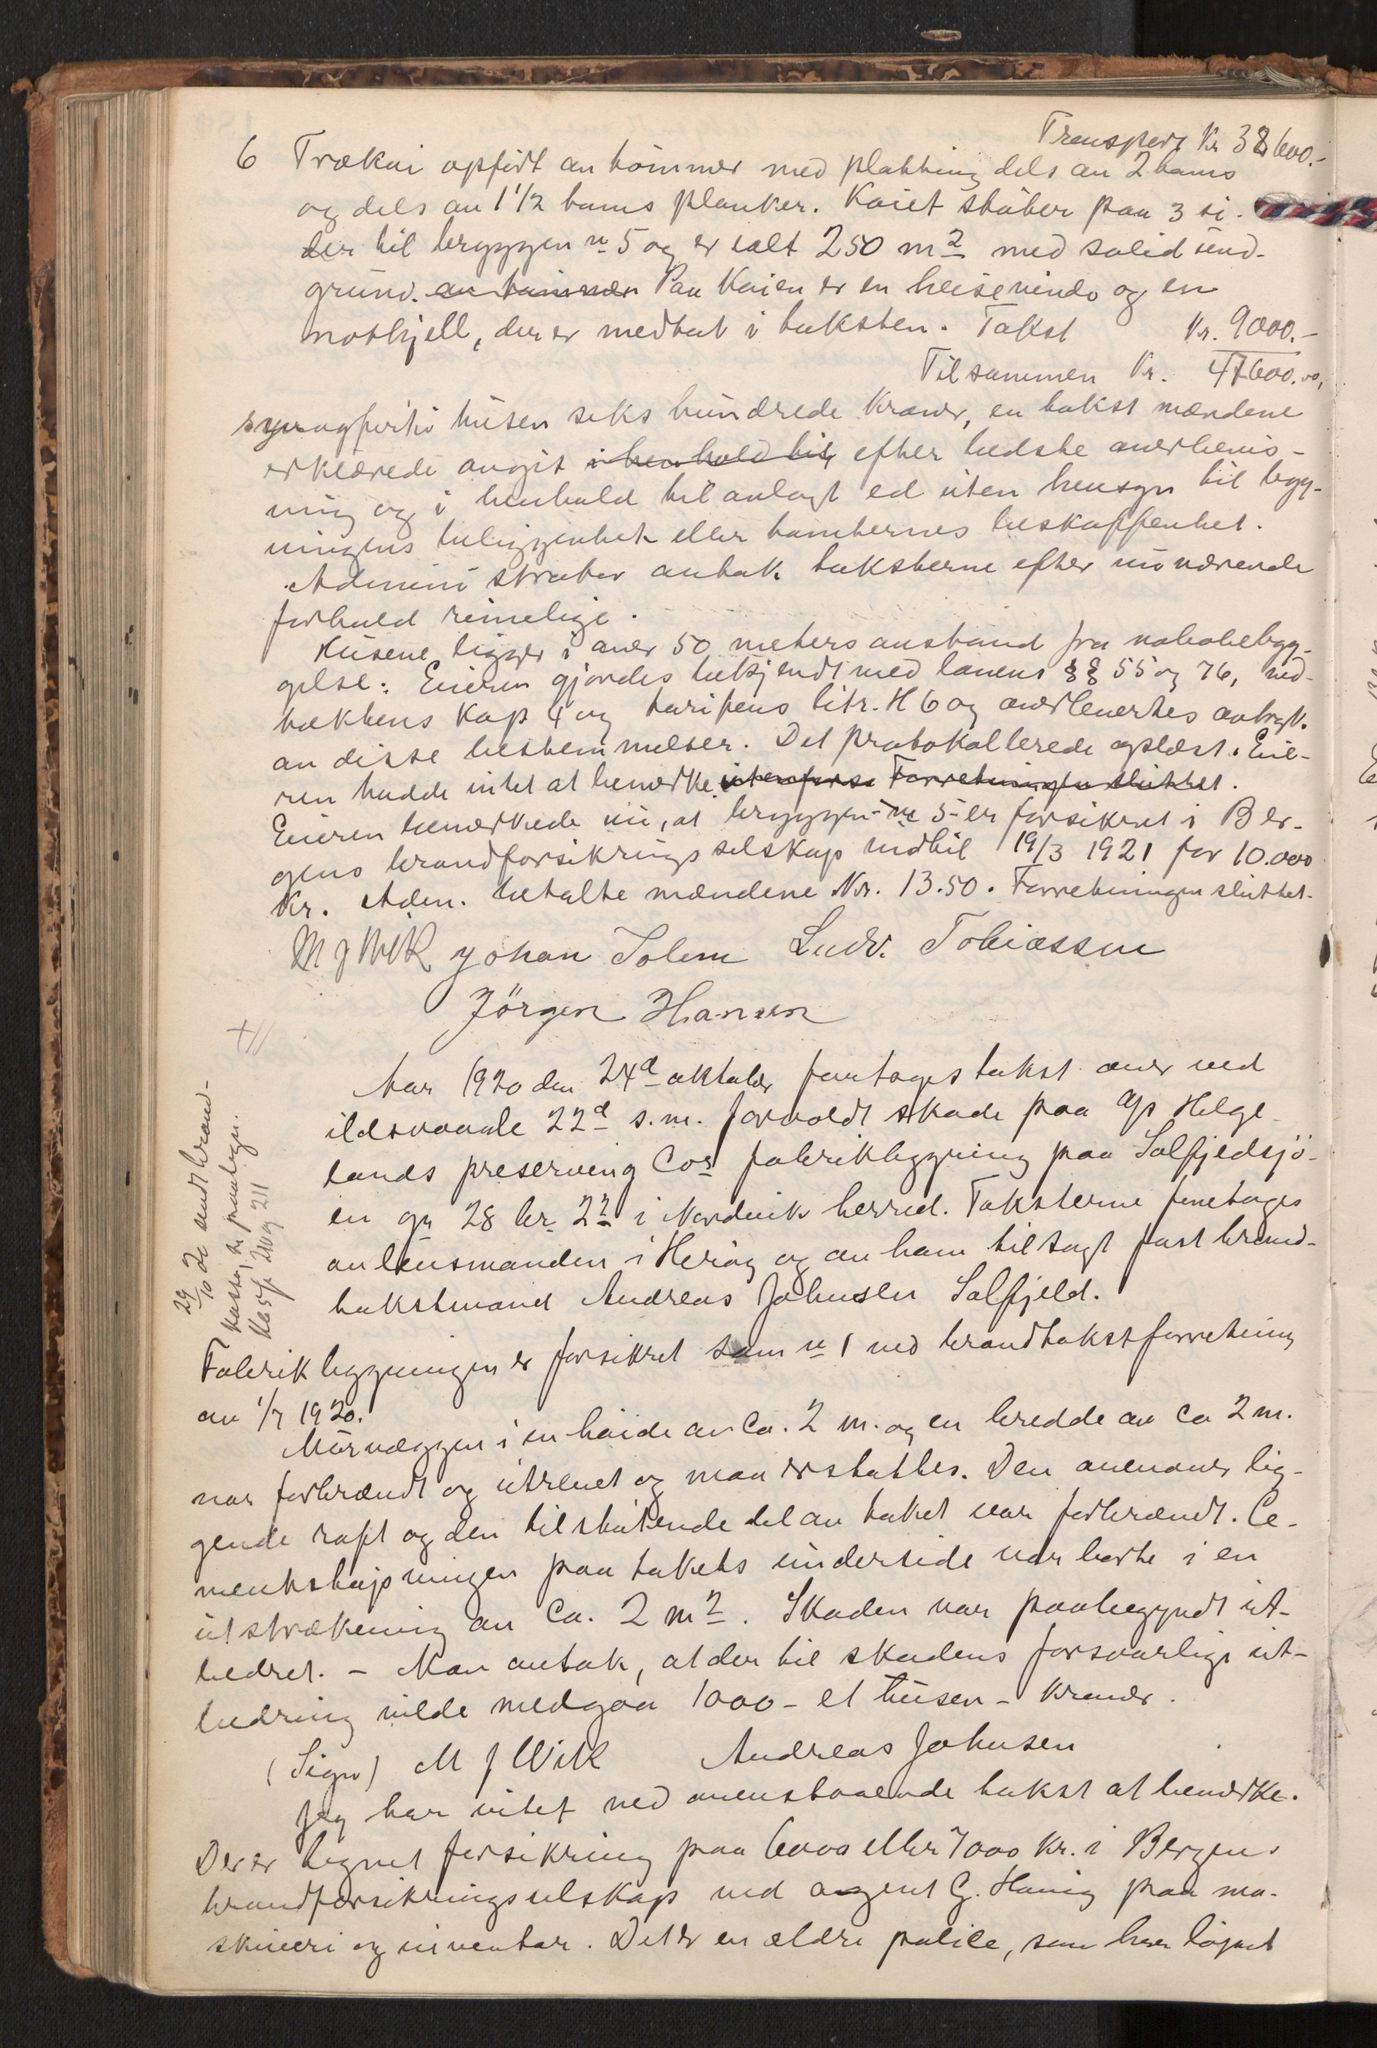 Transport Kr 38600.-
6 Trækai opført av tømmer med plakking dels av 2 toms
og dels av 1 1/2 toms planker. Kaiet støter paa 3 si-
der til bryggen n 5 og er ialt 250 m2 med solid und-
grund. av tømmer Paa Kaien er en heisevinde og en
notkjell, der er medtat i taksten. Takst Kr. 9000.-
Tilsammen Kr. 47600.00,
syvogførti tusen seks hundrede kroner, en takst mændene
erklærede avgit i henhold til efter bedste overbevis-
ning og i henhold til avlagt ed uten hensyn til byg-
ningens beliggenhet eller tomternes beskaffenhet.
Administrator antok taksterne efter nuværende
forhold rimelige.
Husene ligger i over 50 meters avstand fra nabobebyg-
gelse. Eieren gjordes bekjendt med lovens §§ 55 og 76, ved-
tæktens Kap 4 og tarifens litr. H 6 og overleverdes avtryk
av disse bestemmelser. Det protokollerede oplæst. Eie-
ren hadde intet at bemerke. Forretningen sluttet.
Eieren bemerkede nu, at bryggen - n 5 - er forsikret i Ber-
gens brandforsikringsselskap indtil 19/3 1921 for 10.000
Kr. Adm. betalte mændene Kr. 13.50. Forretningen sluttet.
M J Wik Johan Solem Ludv. Tobiassen
Jörgen Hansen
Aar 1920 den 24d oktober foretoges takst over ved
ildsvaade 22d s.m. forvoldt skade paa A/s Helge-
lands preserving Cos fabrikbygning paa Solfjeldsjö-
en gr 28 br 22 i Nordvik herred. Taksterne foretoges
av lensmanden i Herøy og av ham tilsagt fast brand-
takstmand Andreas Johnsen Solfjeld.
29/10 20 sendt brand-
kassen
Fabrikbygningen er forsikret som n 1 ved brandtakstforretning
av 1/7 1920.
Murvæggen i en høide av ca. 2 m. og en bredde av ca 2 m.
var forbrændt og utrevet og maa erstattes. Den ovenover lig-
gende raft og den tilstøtende del av taket var forbrændt. Ce-
mentstøpningen paa takets underside var borte i en
utstrækning av ca. 2 m2. Skaden var paabegyndt ut-
bedret. - Man antok, at der til skadens forsvarlige ut-
bedring vilde medgaa 1000 - et tusen - kroner.
(Sign) M J Wik Andreas Johnsen
Jeg har intet ved ovenstaaende takst at bemerke.
Der er tegnet forsikring paa 6000 eller 7000 kr. i Bergens
brandforsikringsselskap ved agent G. Havig paa ma-
skineri og inventar. Det er en ældre police, som har løpet